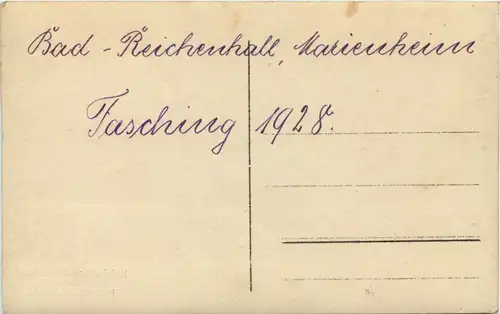 Bad - Reichenhall, Marienheim
Fasching 1928.